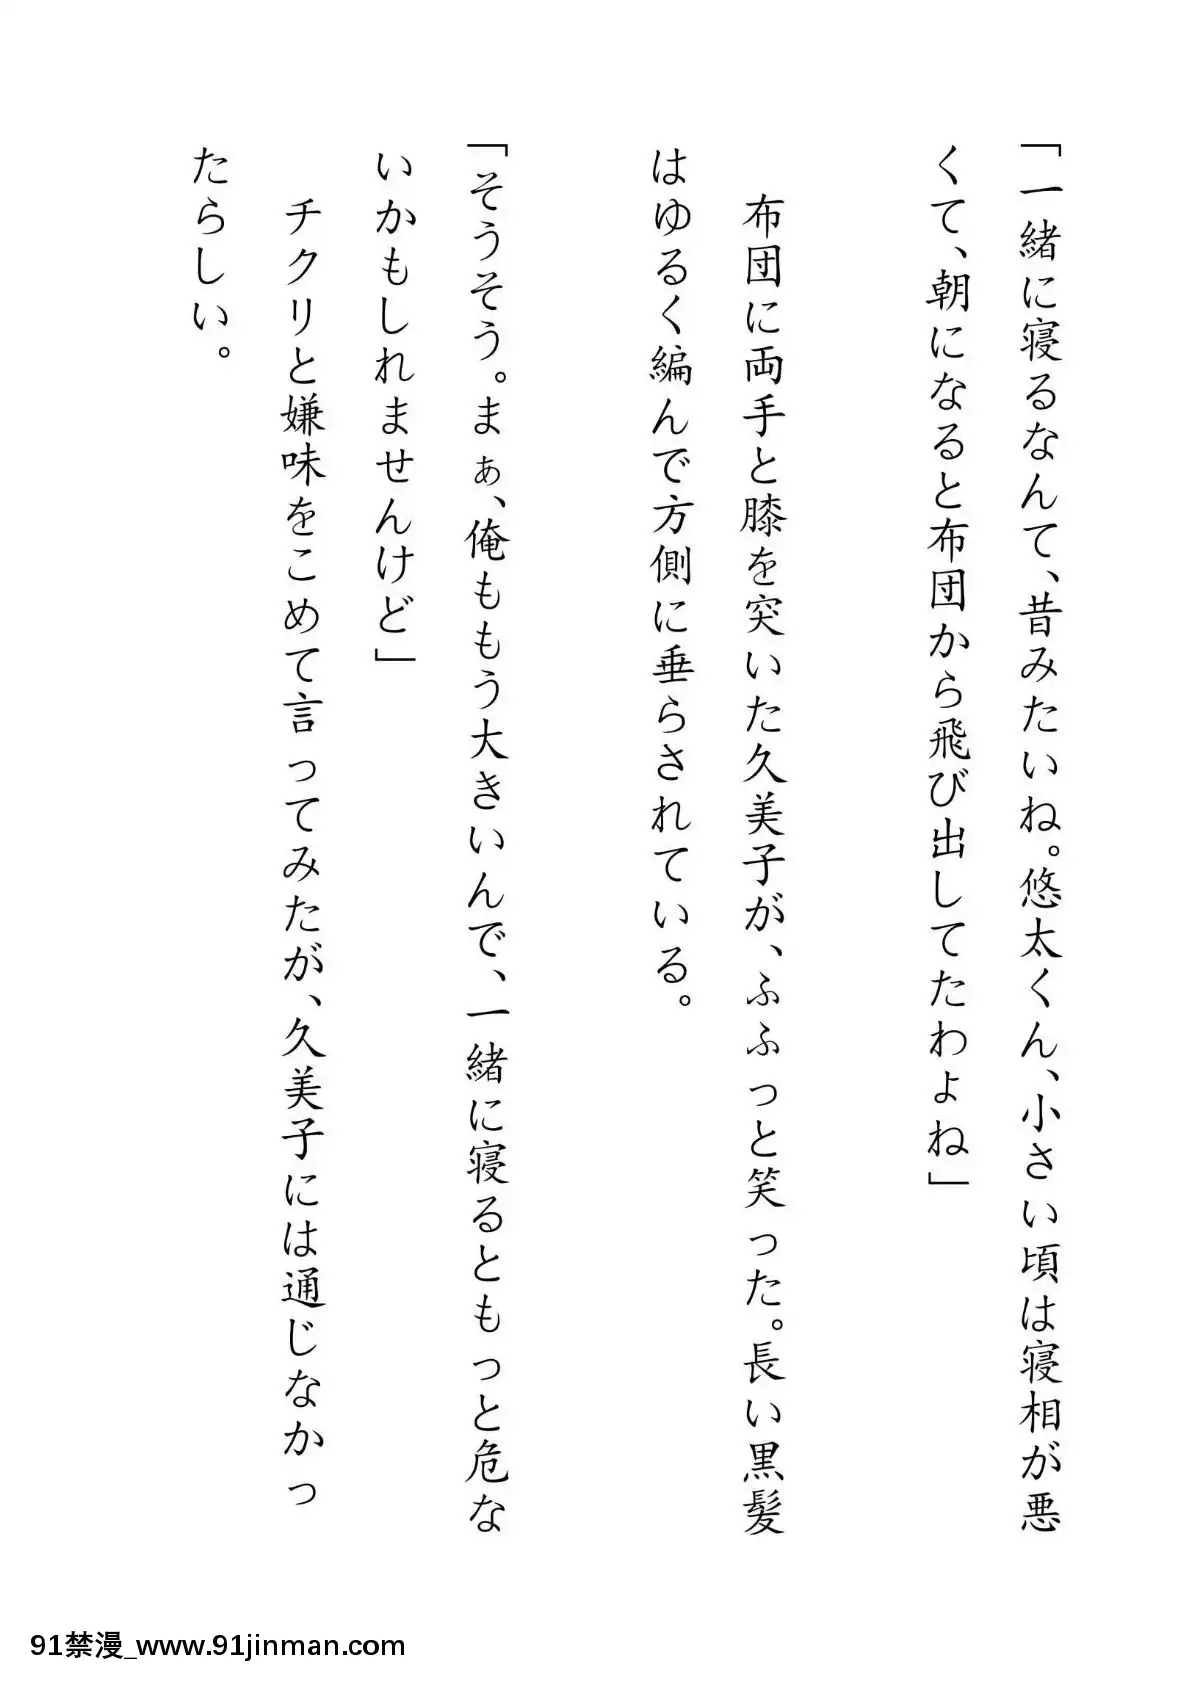 「一緒に寝るなんて、昔みたいね。悠太くん、小さい頃は寝相が悪
くて、朝になると布団から飛び出してたわよね」
布団に両手と膝を突いた久美子が、ふふっと笑った。長い黒髪
はゆるく編んで方側に垂らされている。
「そうそう。まぁ、俺ももう大きいんで、一緒に寝るともっと危な
いかもしれませんけど」
チクリと嫌味をこめて言ってみたが、久美子には通じなかっ
たらしい。
91禁漫_www.91jinman.com